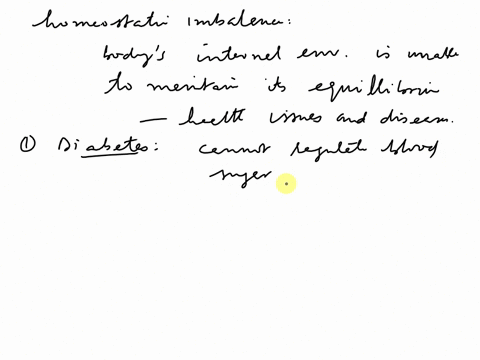 homeostatic imbalance:
body's internal env. is unable
to maintain its equillibrium
— health issues and diseases.
① Diabetes: cannot regulate blood
sugar